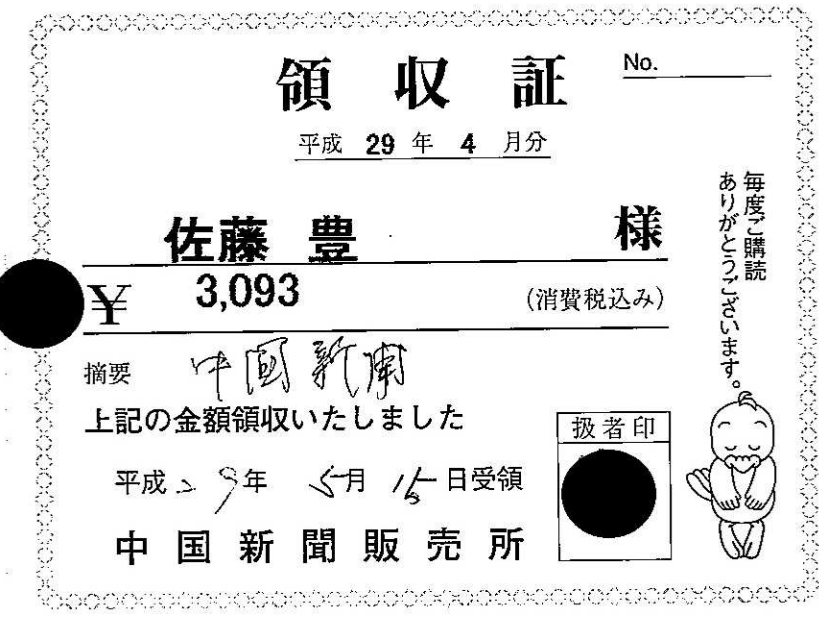 領収証
No.
平成 29 年 4 月分
佐藤 豊 様
¥ 3,093 (消費税込み)
摘要 中国新聞
上記の金額領収いたしました
平成29年 5月 15日受領
中国新聞販売所
扱者印
毎度ご購読
ありがとうございます。